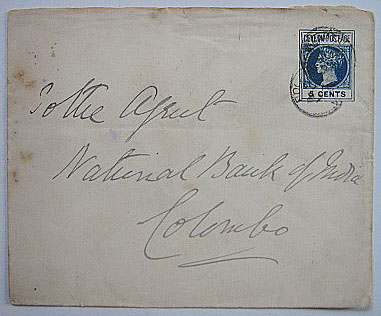 CEYLON POSTAGE
5 CENTS
To the Agent
National Bank of India
Colombo